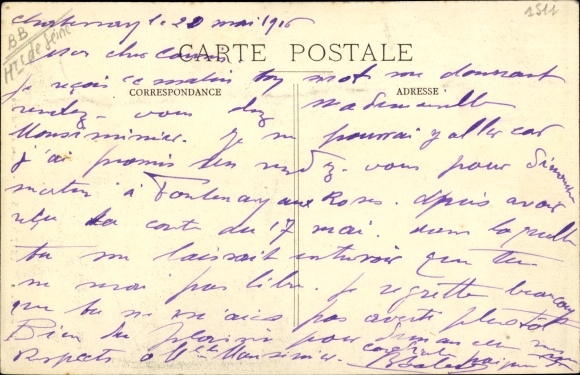 Chatenay le 20 mai 1916
BB
Hts de Seine
1511
Mon cher
CARTE POSTALE
Je reçois ce matin ton mot me donnant
CORRESPONDANCE
ADRESSE
rendez-vous chez Mademoiselle
Monsiminier. Je ne pourrai y aller car
j'ai promis un rendez-vous pour dimanche
matin à Fontenay aux Roses. depuis avoir
reçu ta carte du 17 mai. dans laquelle
tu me laissait entrevoir que tu
ne serai pas libre. Je regrette beaucoup
que tu ne m'aies pas averti plutôt
Bien du plaisir pour dimanche mes
respects à Melle Monsiminier.